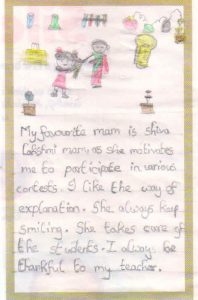 My favourite mam is shiva
Lakshmi mam as she motivates
me to participate in various
contests. I like the way of
explanation. She always keep
smiling. She takes care of
the students. I always be
thankful to my teacher.